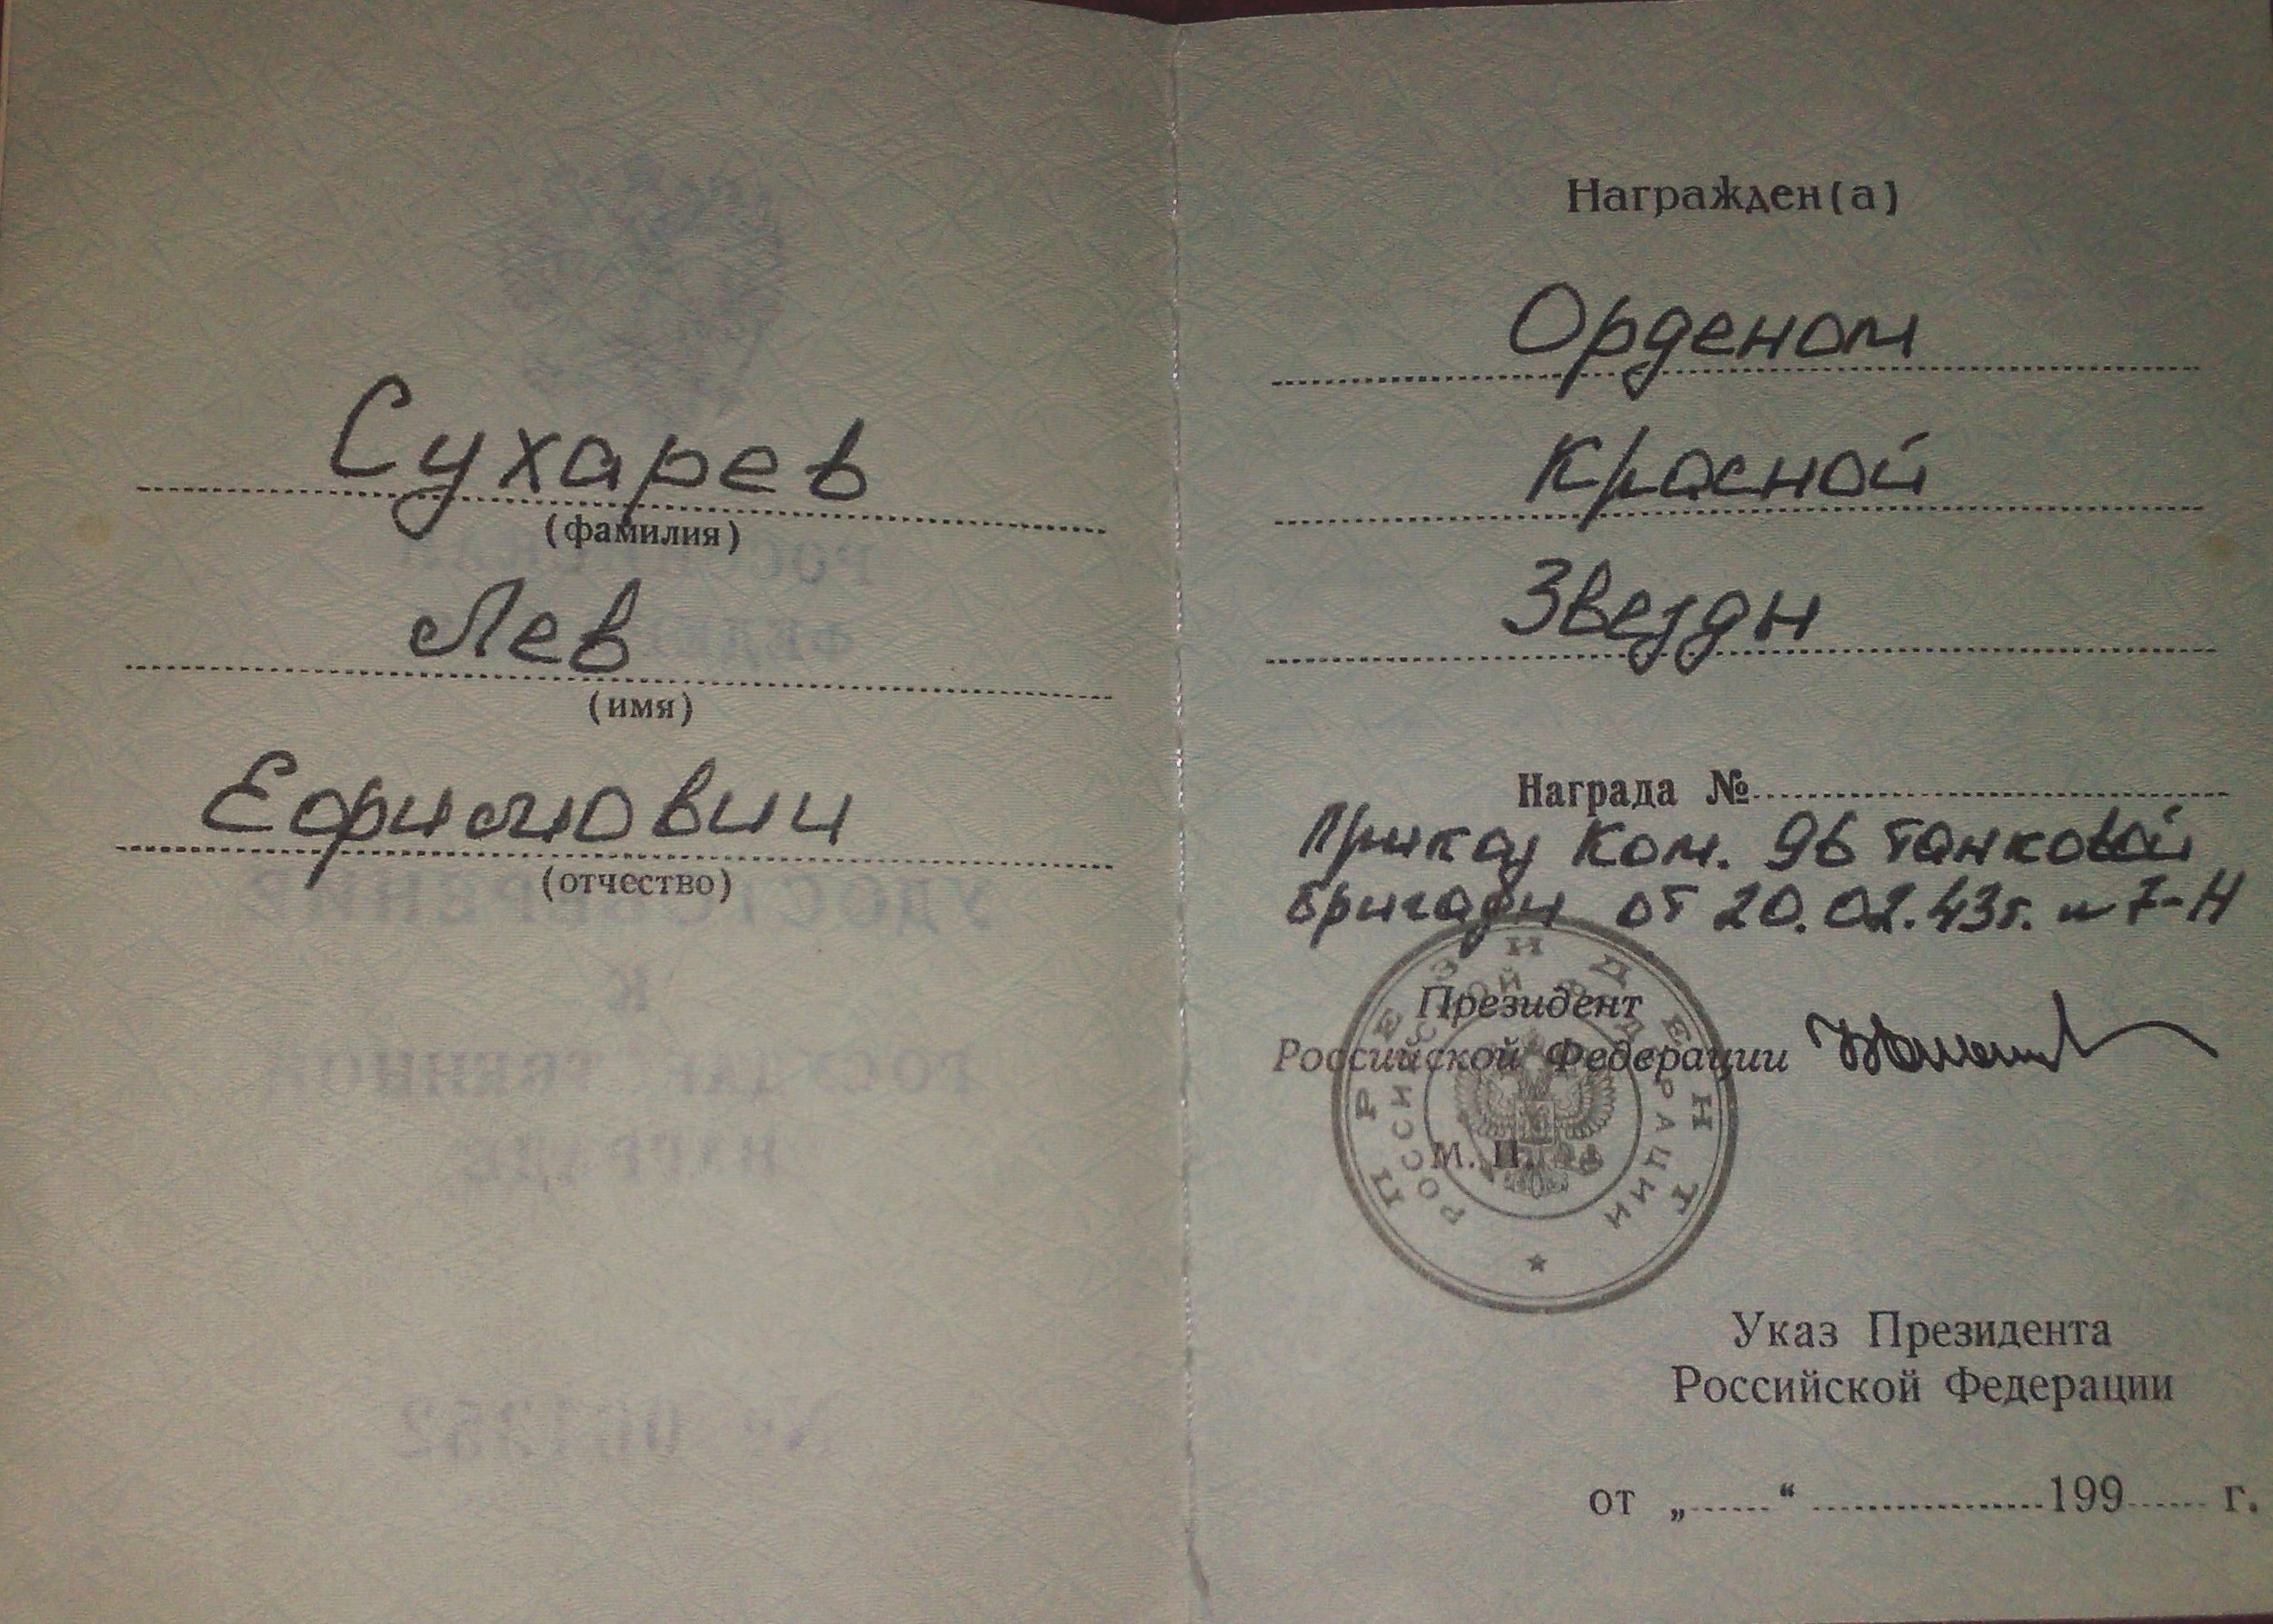 Сухарев
(фамилия)
Лев
(имя)
Ефимович
(отчество)
Награжден(а)
Орденом
Красной
Звезды
Награда №
Приказ Ком. 96 танковой
бригады от 20.02.43г. № 7-Н
Президент
Российской Федерации
М. П.
ПРЕЗИДЕНТ
РОССИЙСКОЙ ФЕДЕРАЦИИ
Указ Президента
Российской Федерации
от „ “ 199 г.